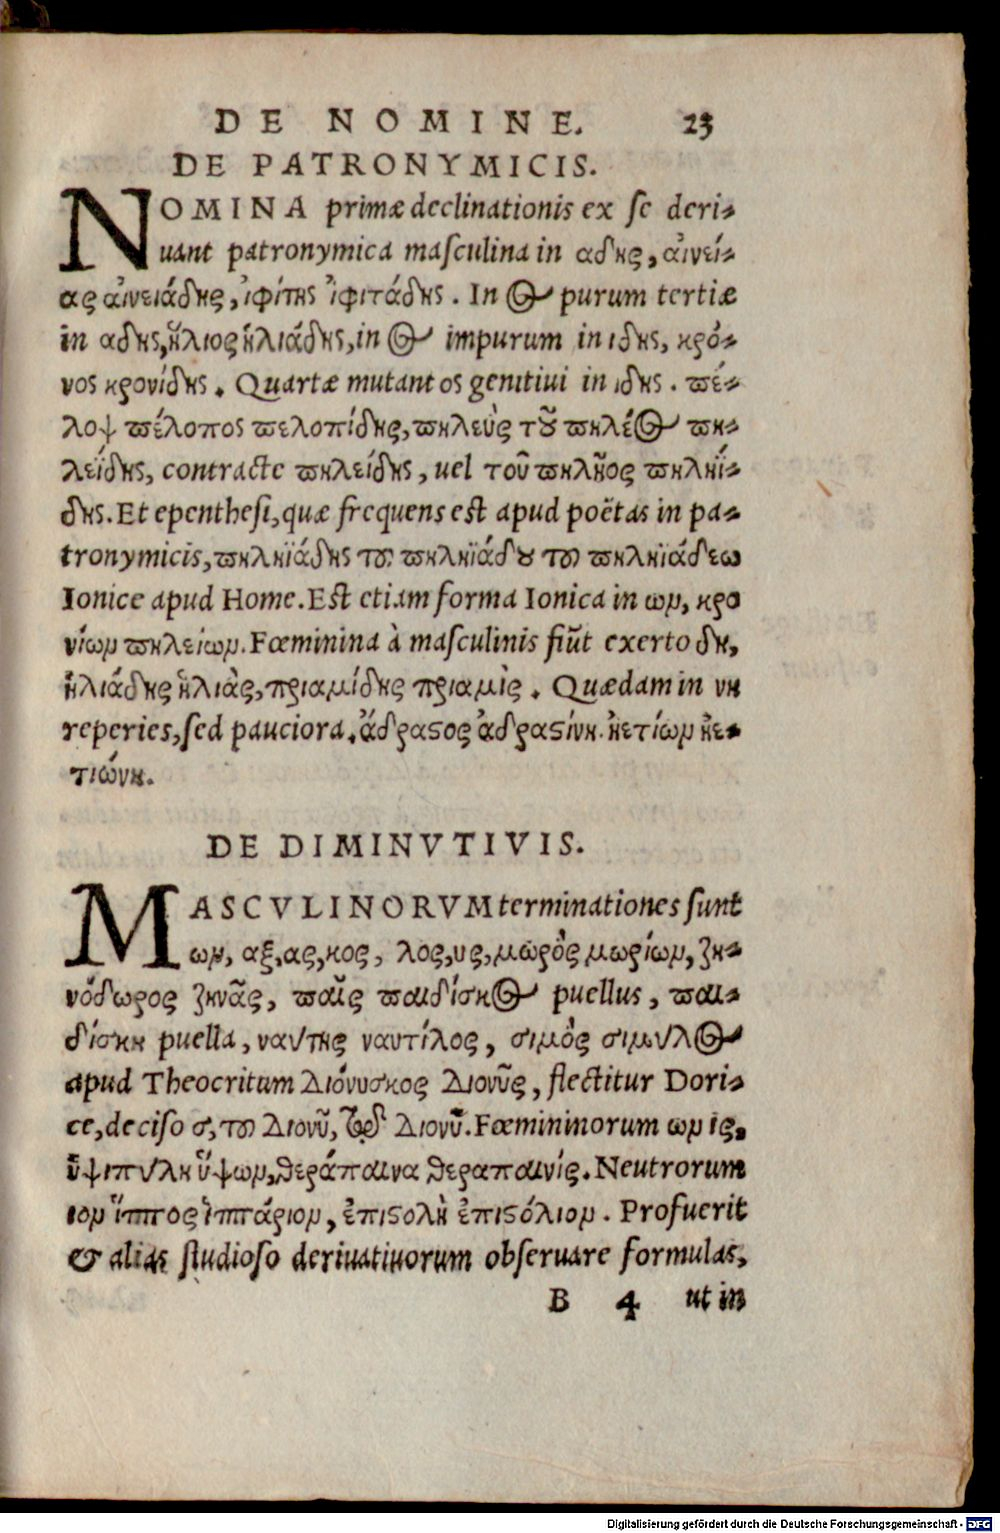 DE NOMINE. 23
DE PATRONYMICIS.
NOMINA primæ declinationis ex se deri-
uant patronymica masculina in αδης, αἰνεί-
ας αἰνειάδης, ἰφίτης ἰφιτάδης. In ος purum tertiæ
in αδης, ἥλιος ἡλιάδης, in ος impurum in ιδης, κρό-
νος κρονίδης. Quartæ mutant os genitiui in ιδης. πέ-
λοψ πέλοπος πελοπίδης, πηλεὺς τοῦ πηλέος πη-
λεΐδης, contracte πηλείδης, uel τοῦ πηλῆος πηληϊ-
δης. Et epenthesi, quæ frequens est apud poëtas in pa-
tronymicis, πηληϊάδης τοῦ πηληϊάδου τοῦ πηληϊάδεω
Ionice apud Home. Est etiam forma Ionica in ων, κρο
νίων πηλείων. Fœminina à masculinis fiũt exerto δη,
ἡλιάδης ἡλιὰς, πριαμίδης πριαμὶς. Quædam in νη
reperies, sed pauciora. ἄδραστος ἀδραστίνη. ἠετίων ἠε-
τιώνη.
DE DIMINVTIVIS.
MASCVLINORVM terminationes sunt
ων, αξ, ας, κος, λος, υς, μωρὸς μωρίων, ζη-
νόδωρος ζηνᾶς, παῖς παιδίσκος puellus, παι-
δίσκη puella, ναύτης ναυτίλος, σιμὸς σιμύλος
apud Theocritum Διόνυσκος Διονῦς, flectitur Dori-
ce, deciso σ, τοῦ Διονῦ, τῷ Διονῦ. Fœmininorum ων ις,
ὑψιπύλη ὕψων, θεράπαινα θεραπαινίς. Neutrorum
ιον ἵππος ἱππάριον, ἐπιστολὴ ἐπιστόλιον. Profuerit
& alias studioso deriuatiuorum obseruare formulas,
B 4 ut in
Digitalisierung gefördert durch die Deutsche Forschungsgemeinschaft - DFG